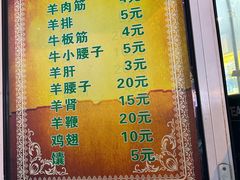 羊肉筋 4元
羊排 5元
牛板筋 4元
牛小腰子 5元
羊肝 3元
羊腰子 20元
羊肾 15元
羊鞭 20元
鸡翅 10元
馕 5元